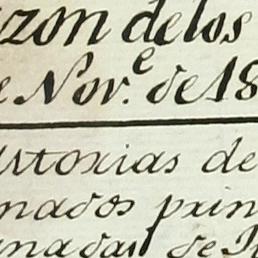 zon de los
Nov.e de 18
istorias de
nados prin
anadas de